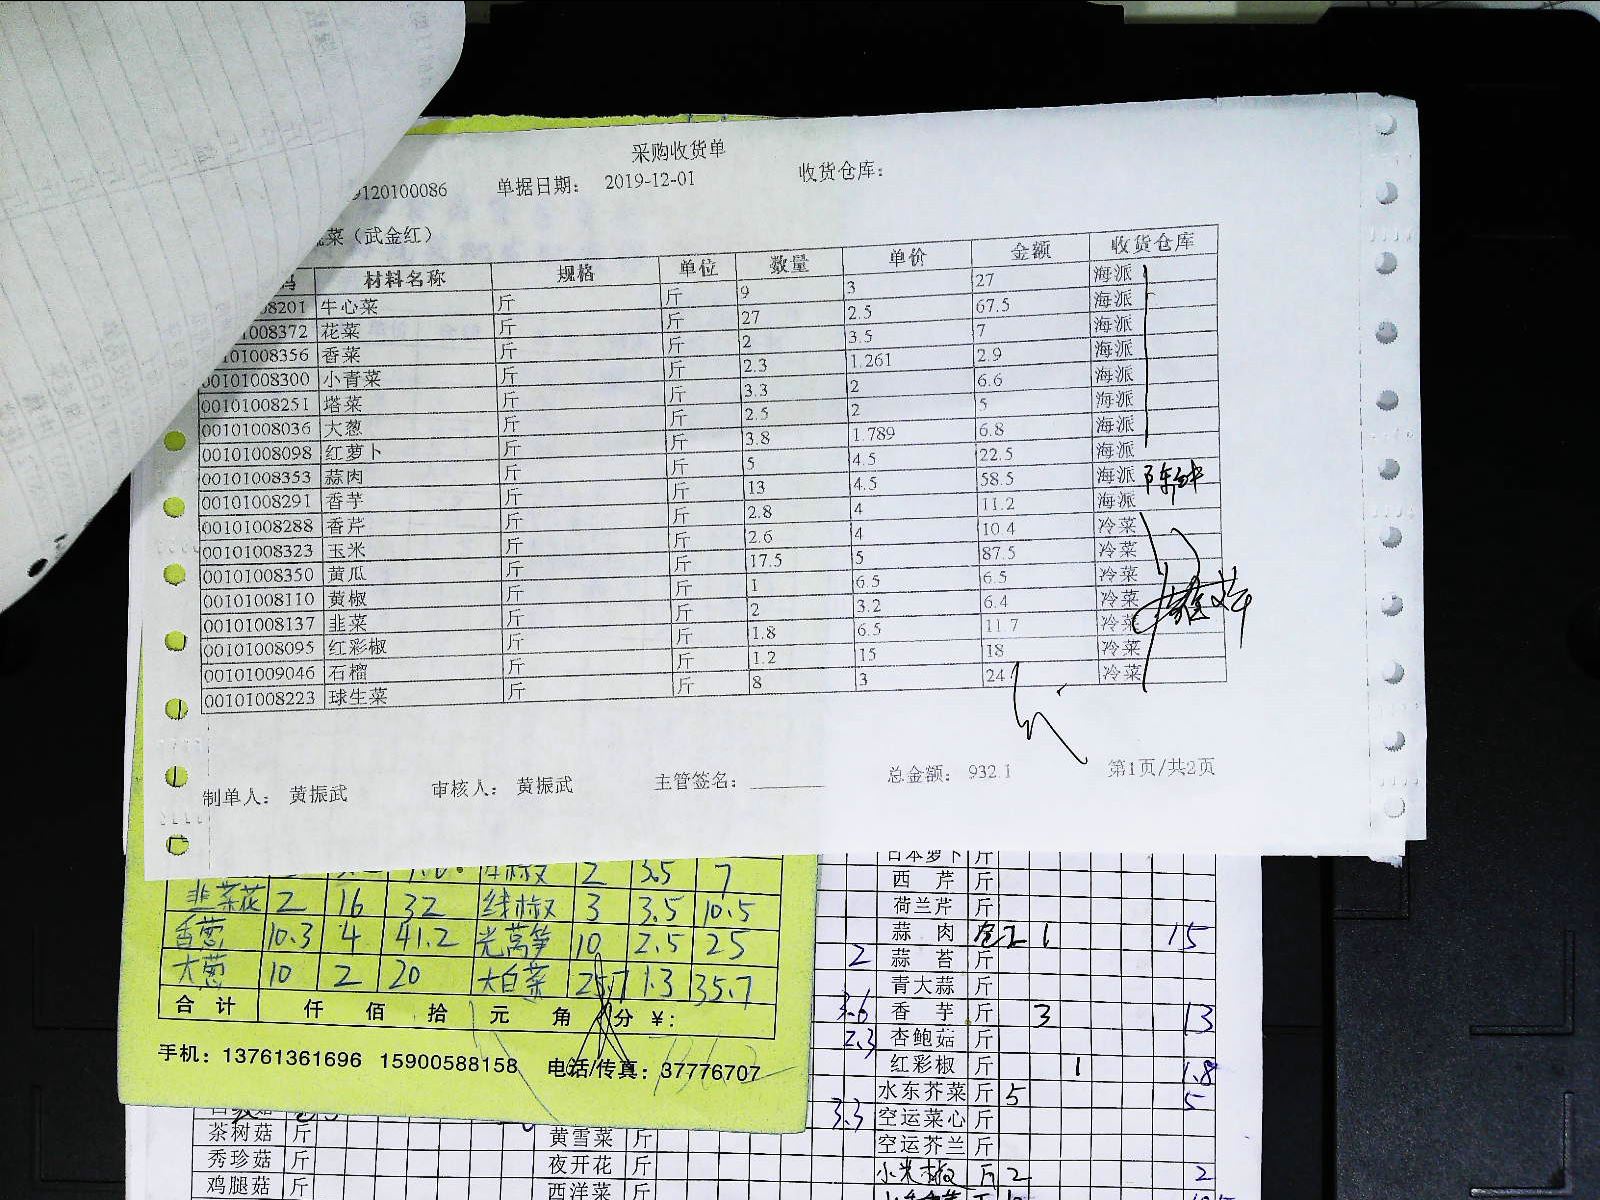 采购收货单
9120100086 单据日期: 2019-12-01 收货仓库:
菜（武金红）
材料名称 规格 单位 数量 单价 金额 收货仓库
8201 牛心菜 斤 斤 9 3 27 海派
1008372 花菜 斤 斤 27 2.5 67.5 海派
101008356 香菜 斤 斤 2 3.5 7 海派
00101008300 小青菜 斤 斤 2.3 1.261 2.9 海派
00101008251 塔菜 斤 斤 3.3 2 6.6 海派
00101008036 大葱 斤 斤 2.5 2 5 海派
00101008098 红萝卜 斤 斤 3.8 1.789 6.8 海派
00101008353 蒜肉 斤 斤 5 4.5 22.5 海派
00101008291 香芋 斤 斤 13 4.5 58.5 海派
00101008288 香芹 斤 斤 2.8 4 11.2 海派
00101008323 玉米 斤 斤 2.6 4 10.4 冷菜
00101008350 黄瓜 斤 斤 17.5 5 87.5 冷菜
00101008110 黄椒 斤 斤 1 6.5 6.5 冷菜
00101008137 韭菜 斤 斤 2 3.2 6.4 冷菜
00101008095 红彩椒 斤 斤 1.8 6.5 11.7 冷菜
00101009046 石榴 斤 斤 1.2 15 18 冷菜
00101008223 球生菜 斤 斤 8 3 24 冷菜
制单人: 黄振武 审核人: 黄振武 主管签名: 总金额: 932.1 第1页/共2页
2 3.5 7
韭菜花 2 16 32 线椒 3 3.5 10.5
香葱 10.3 4 41.2 光莴笋 10 2.5 25
大葱 10 2 20 大白菜 25.7 1.3 35.7
合计 仟 佰 拾 元 角 分 ¥:
手机: 13761361696 15900588158 电话/传真: 37776707
日本萝卜 斤
西芹 斤
荷兰芹 斤
蒜肉 1 15
2 蒜苔 斤
青大蒜 斤
3.6 香芋 斤 3 13
2.3 杏鲍菇 斤
红彩椒 斤 1 1.8
水东芥菜 斤 5 5
3.3 空运菜心 斤
空运芥兰 斤
小米椒 斤 2 2
茶树菇 斤 黄雪菜 斤
秀珍菇 斤 夜开花 斤
鸡腿菇 斤 西洋菜 斤